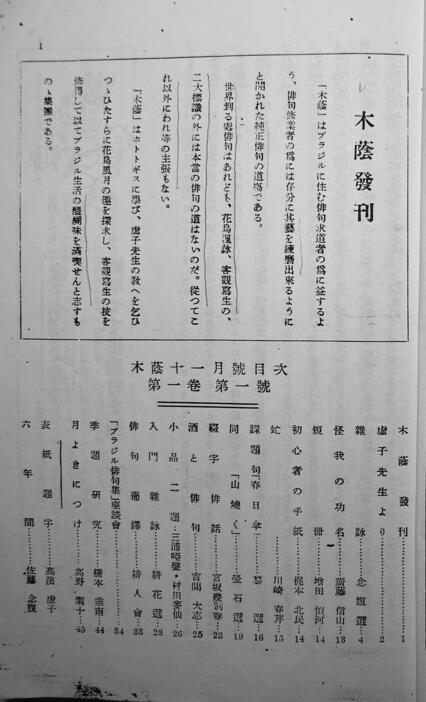 1
木蔭發刊
「木蔭」はブラジルに住む俳句求道者の爲に益するよ
う、俳句修業者の爲には存分に其藝を練磨出來るように
と開かれた純正俳句の道場である。
世界到る處俳句はあれども、花鳥諷詠、客觀寫生の、
二大標識の外には本當の俳句の道はないのだ。從つてこ
れ以外にわれ等の主張もない。
「木蔭」はホトトギスに學び、虚子先生の敎へを乞ひ
つゝひたすらに花鳥風月の趣を探求し、客觀寫生の技を
修得して以てブラジル生活の醍醐味を滿喫せんと志すも
のゝ集團である。
木蔭 十一月號目次
第一卷第一號
木蔭發刊…1
虚子先生より…2
雜詠…念腹選…4
怪我の功名…齋藤信山…13
短册…增田恒河…14
初心者の手紙…梶本北民…14
虻…川崎春芹…15
課題句「春日傘」…選…16
同「山燒く」…石選…19
綴字俳話…宮坂…23
酒と俳句…吉間大志…25
小品二題…三浦啞聲・村田麥仙…26
入門雜詠…緋花選…28
俳句葡譯…緋人會…33
「ブラジル俳句集」座談會…34
季題研究…橋本南…44
月よきにつけ…高野素十…45
表紙題字…高濱虚子
六年間…佐藤念腹